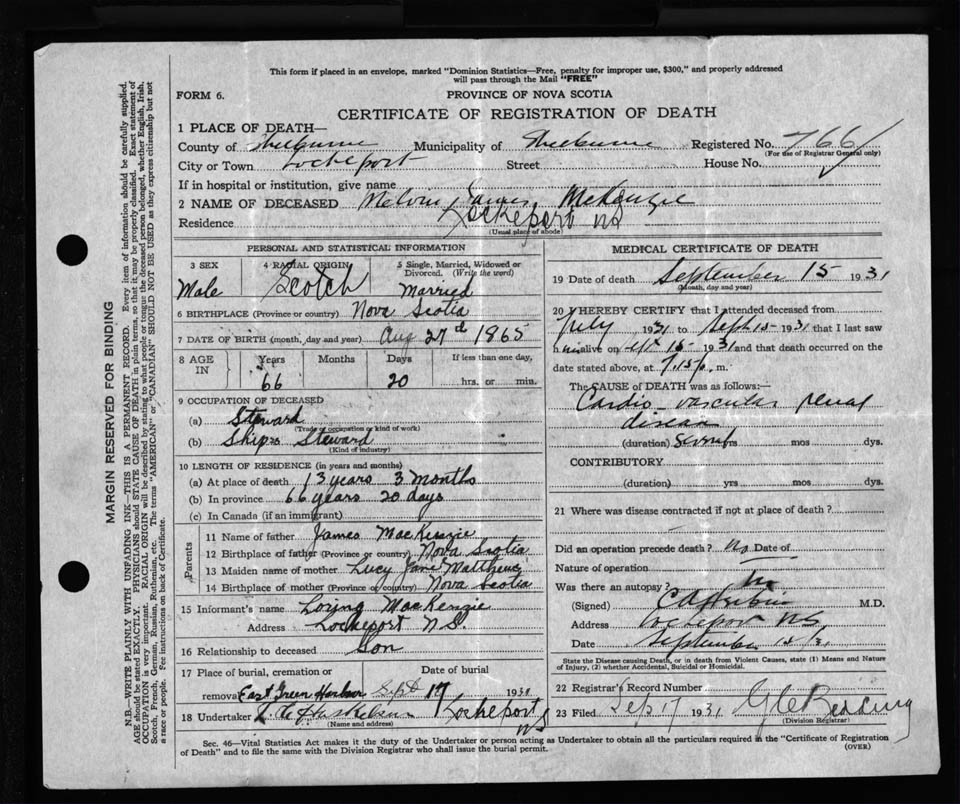 This form if placed in an envelope, marked "Dominion Statistics—Free, penalty for improper use, $300," and properly addressed
will pass through the Mail "FREE"
FORM 6.
PROVINCE OF NOVA SCOTIA
CERTIFICATE OF REGISTRATION OF DEATH
1 PLACE OF DEATH—
County of Shelburne Municipality of Shelburne Registered No. 766
(For use of Registrar General only)
City or Town Lockeport Street House No.
If in hospital or institution, give name
2 NAME OF DECEASED Melvin James McKenzie
Residence Lockeport NS
(Usual place of abode)
PERSONAL AND STATISTICAL INFORMATION
3 SEX 4 RACIAL ORIGIN 5 Single, Married, Widowed or
Divorced. (Write the word)
Male Scotch Married
6 BIRTHPLACE (Province or country) Nova Scotia
7 DATE OF BIRTH (month, day and year) Aug 27th 1865
8 AGE IN Years Months Days If less than one day,
66 20 hrs. or min.
9 OCCUPATION OF DECEASED
(a) Steward
(Trade or occupation or kind of work)
(b) Ships Steward
(Kind of industry)
10 LENGTH OF RESIDENCE (in years and months)
(a) At place of death 13 years 3 months
(b) In province 66 years 20 days
(c) In Canada (if an immigrant)
Parents
11 Name of father James MacKenzie
12 Birthplace of father (Province or country) Nova Scotia
13 Maiden name of mother Lucy Jane Matthews
14 Birthplace of mother (Province or country) Nova Scotia
15 Informant's name MacKenzie
Address Lockeport N.S.
16 Relationship to deceased Son
17 Place of burial, cremation or Date of burial
removal East Green Harbor Sept 17, 1931
18 Undertaker Lockeport NS
(Name and address)
MEDICAL CERTIFICATE OF DEATH
19 Date of death September 15 1931
(Month, day and year)
20 I HEREBY CERTIFY that I attended deceased from
July 1931 to Sept 15 1931 that I last saw
him alive on Sept 15 1931 and that death occurred on the
date stated above, at 7.15 p. m.
The CAUSE of DEATH was as follows:—
Cardio-vascular renal
disease
(duration) several yrs mos dys.
CONTRIBUTORY
(duration) yrs mos dys.
21 Where was disease contracted if not at place of death?
Did an operation precede death? no Date of
Nature of operation
Was there an autopsy? no
(Signed) M.D.
Address Lockeport N.S.
Date September
State the Disease causing Death, or in death from Violent Causes, state (1) Means and Nature
of Injury, (2) whether Accidental, Suicidal or Homicidal.
22 Registrar's Record Number
23 Filed Sep 17 1931
(Division Registrar)
Sec. 46—Vital Statistics Act makes it the duty of the Undertaker or person acting as Undertaker to obtain all the particulars required in the "Certificate of Registration
of Death" and to file the same with the Division Registrar who shall issue the burial permit.
(OVER)
MARGIN RESERVED FOR BINDING
N.B.—WRITE PLAINLY WITH UNFADING INK—THIS IS A PERMANENT RECORD. Every item of information should be carefully supplied.
AGE should be stated EXACTLY. PHYSICIANS should STATE CAUSE OF DEATH in plain terms, so that it may be properly classified. Exact statement of
OCCUPATION is very important. RACIAL ORIGIN will be described by stating to what people or tongue the deceased person belonged, whether English, Irish,
Scotch, French, German, Russian, Ruthenian, etc. The terms "AMERICAN" or "CANADIAN" SHOULD NOT BE USED as they express citizenship but not
a race or people. Fee instructions on back of Certificate.